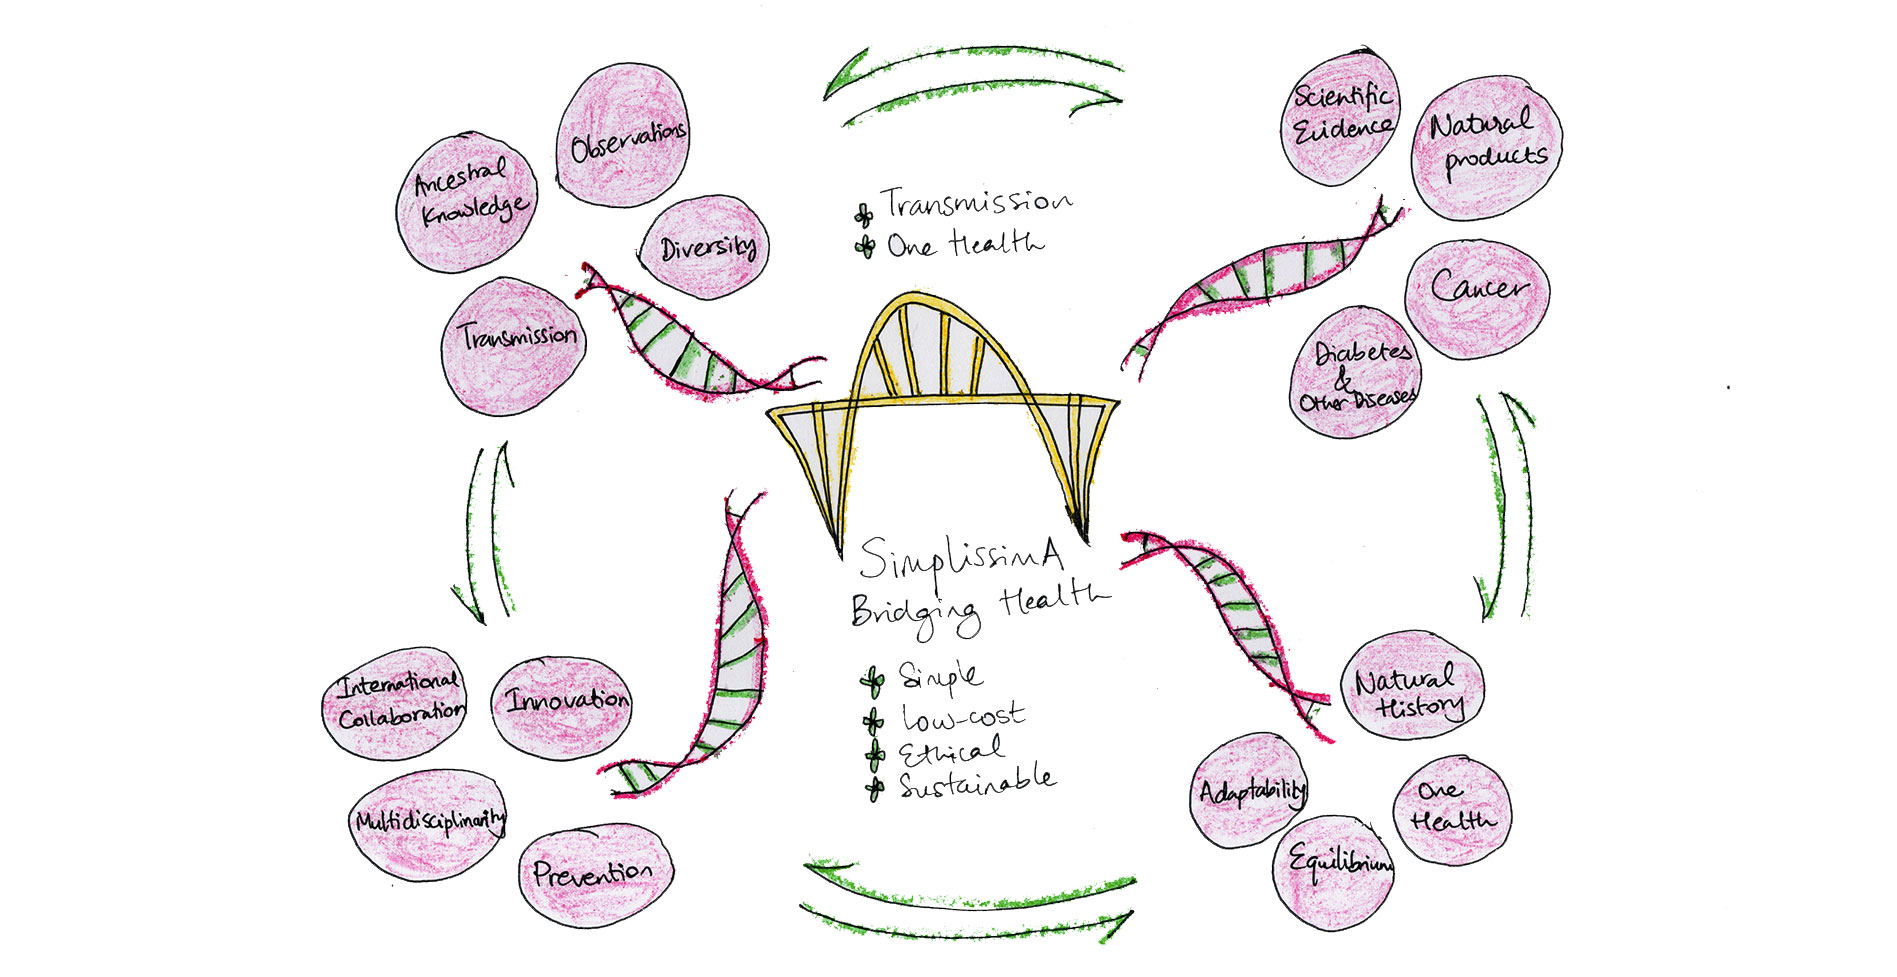 Observations
Ancestral
Knowledge
Diversity
Transmission
Transmission
One Health
Scientific
Evidence
Natural
products
Cancer
Diabetes
&
Other Diseases
SimplissimA
Bridging Health
Simple
Low-cost
Ethical
Sustainable
International
Collaboration
Innovation
Multidisciplinarity
Prevention
Natural
History
Adaptability
One
Health
Equilibrium